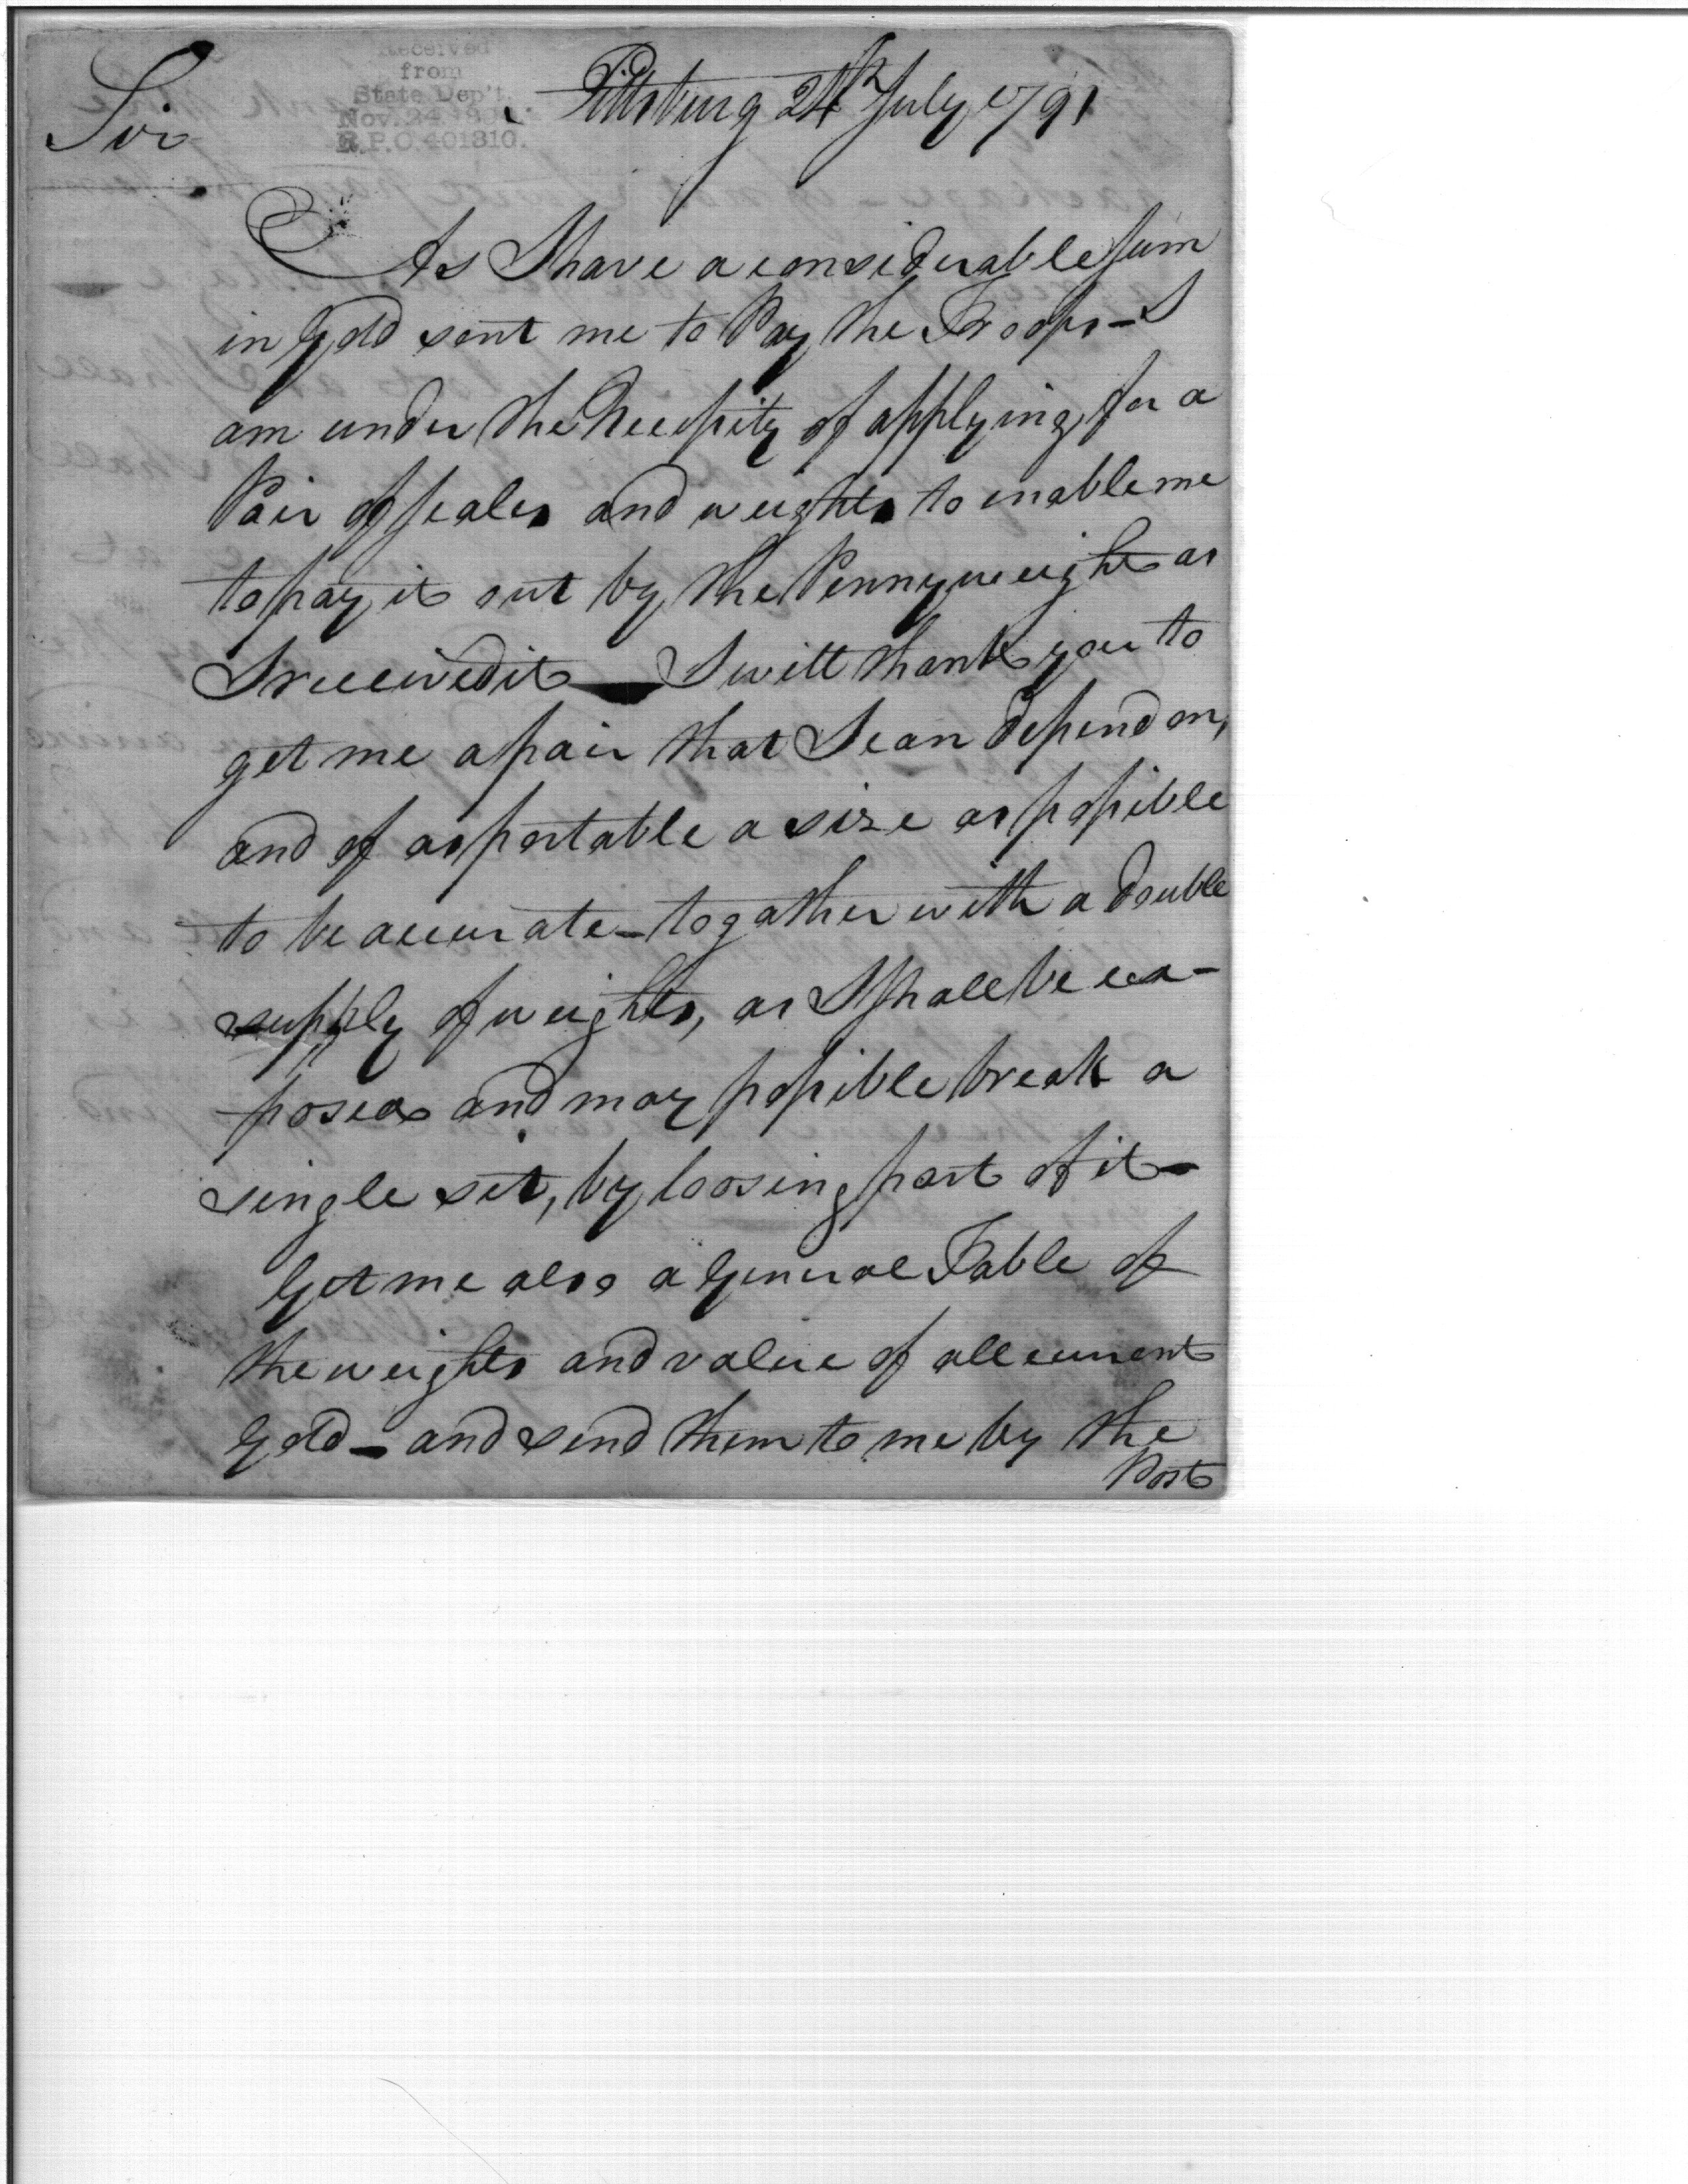 Received
from
State Dep't.
Nov. 24
R.P.O. 401310.
Sir Pittsburg 24th July 1791
As I have a considerable sum
in Gold sent me to Pay the Troops – I
am under the Necessity of applying for a
Pair of scales and weights to enable me
to pay it out by the Pennyweight as
I received it — I will thank you to
get me a pair that I can depend on,
and of as portable a size as possible
to be accurate – togather with a double
supply of weights, as I shall be ex-
posed and may possible break a
single set, by loosing part of it –
Get me also a General Table of
the weights and value of all current
Gold – and send them to me by the
Post